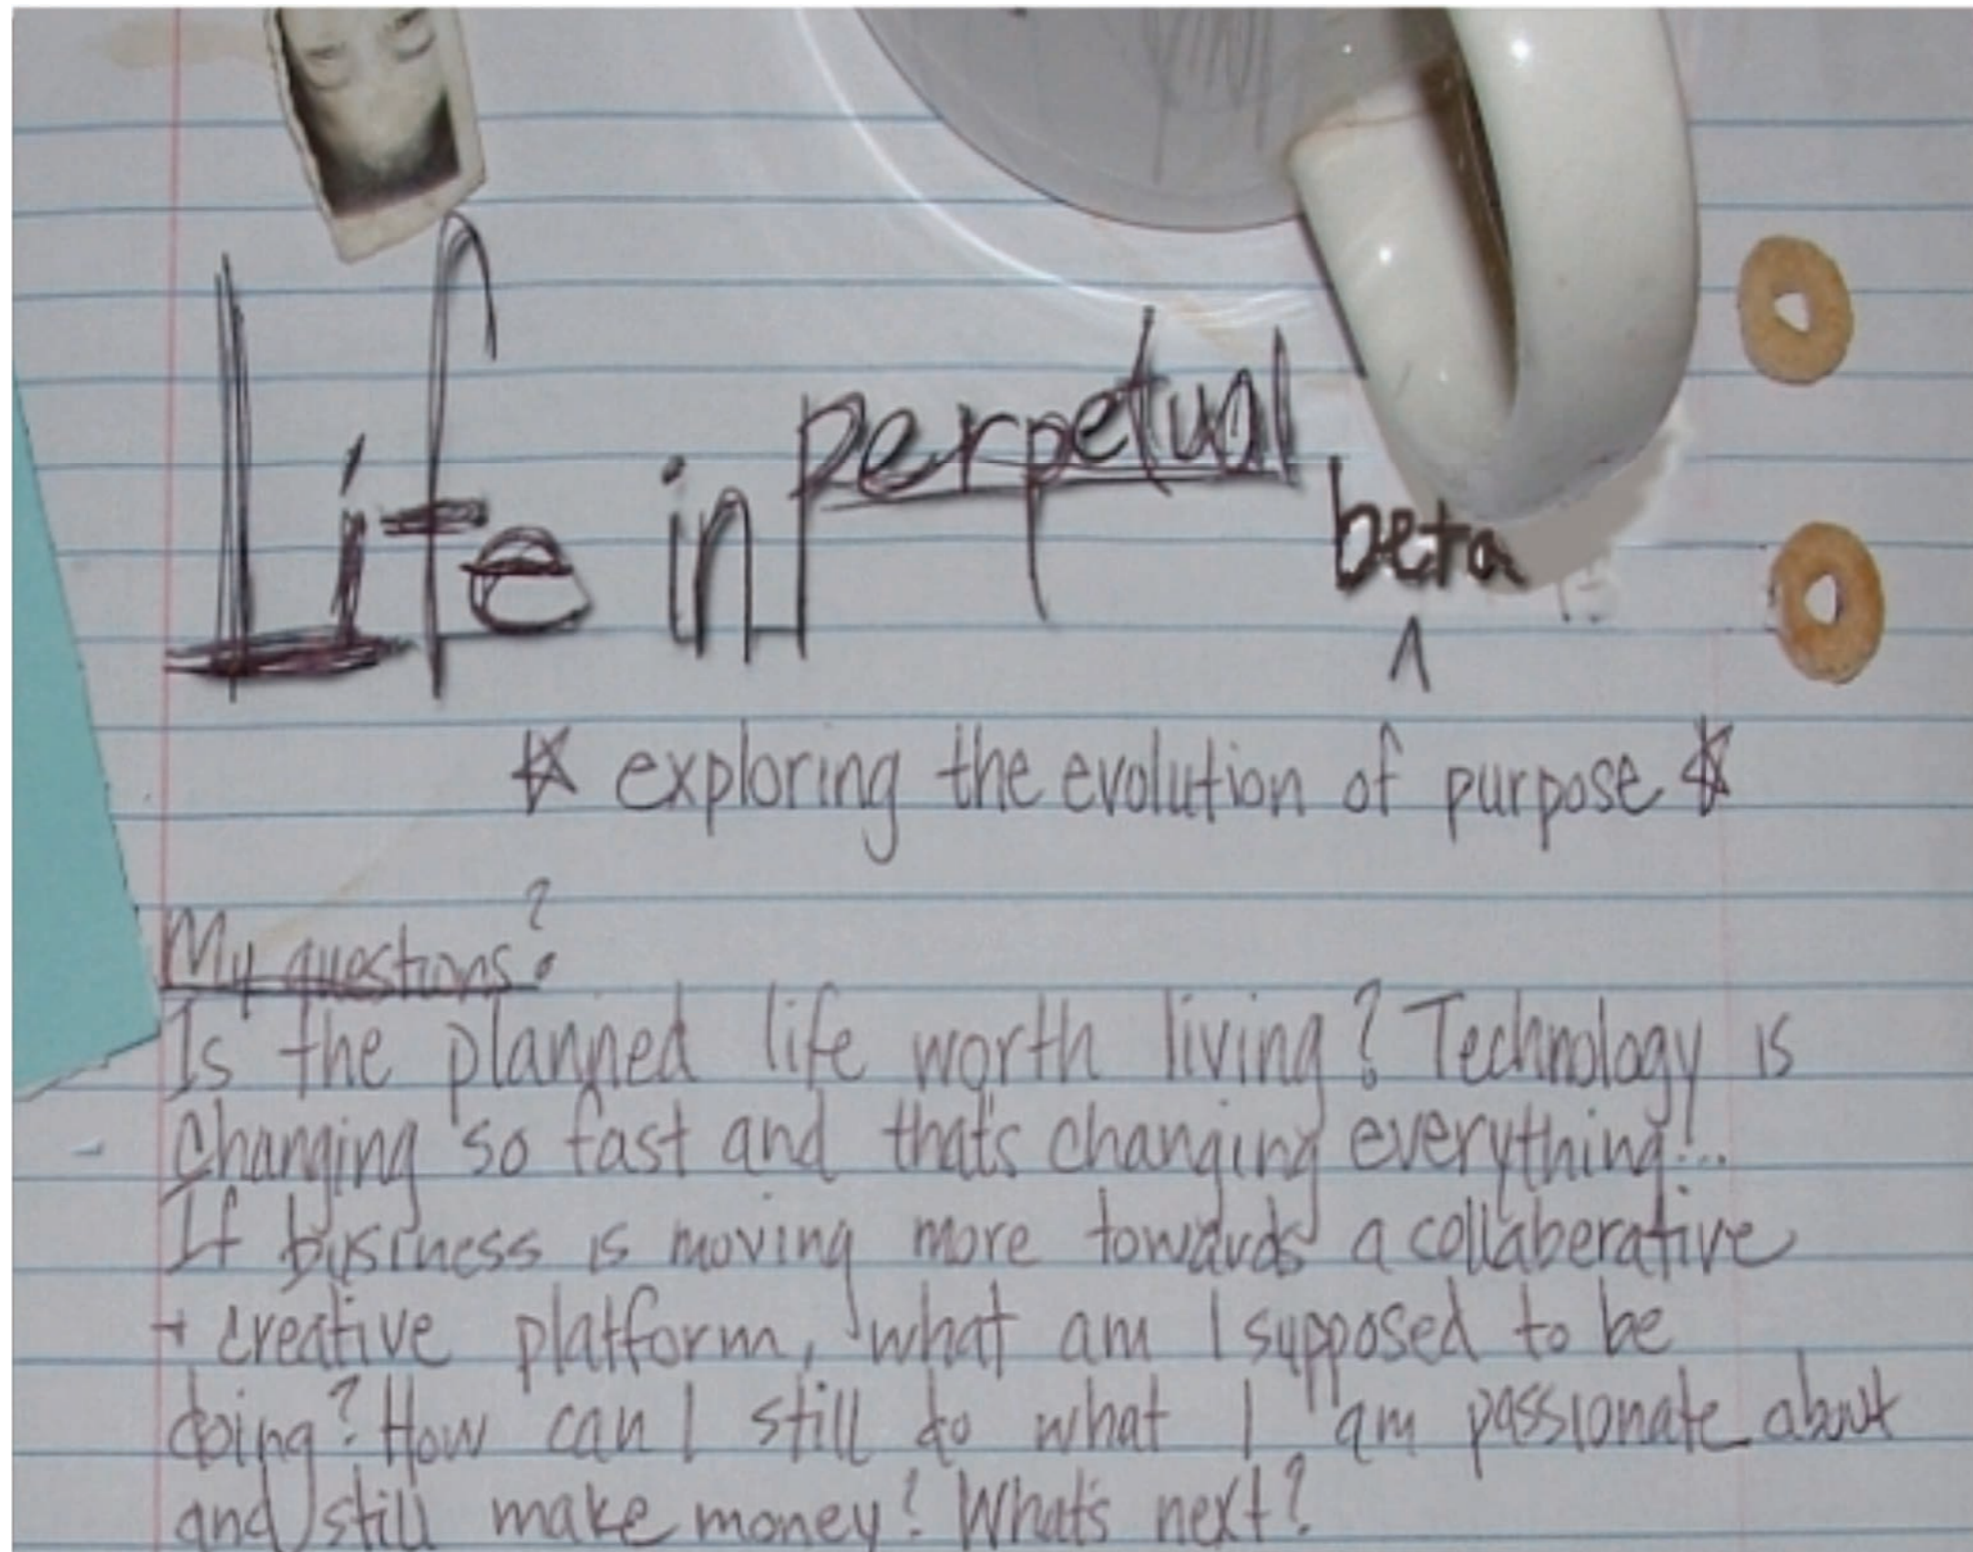 Life in perpetual beta
^
☆ exploring the evolution of purpose ☆
My questions?
Is the planned life worth living? Technology is
changing so fast and that's changing everything!..
If business is moving more towards a collaberative
+ creative platform, what am I supposed to be
doing? How can I still do what I am passionate about
and still make money? What's next?